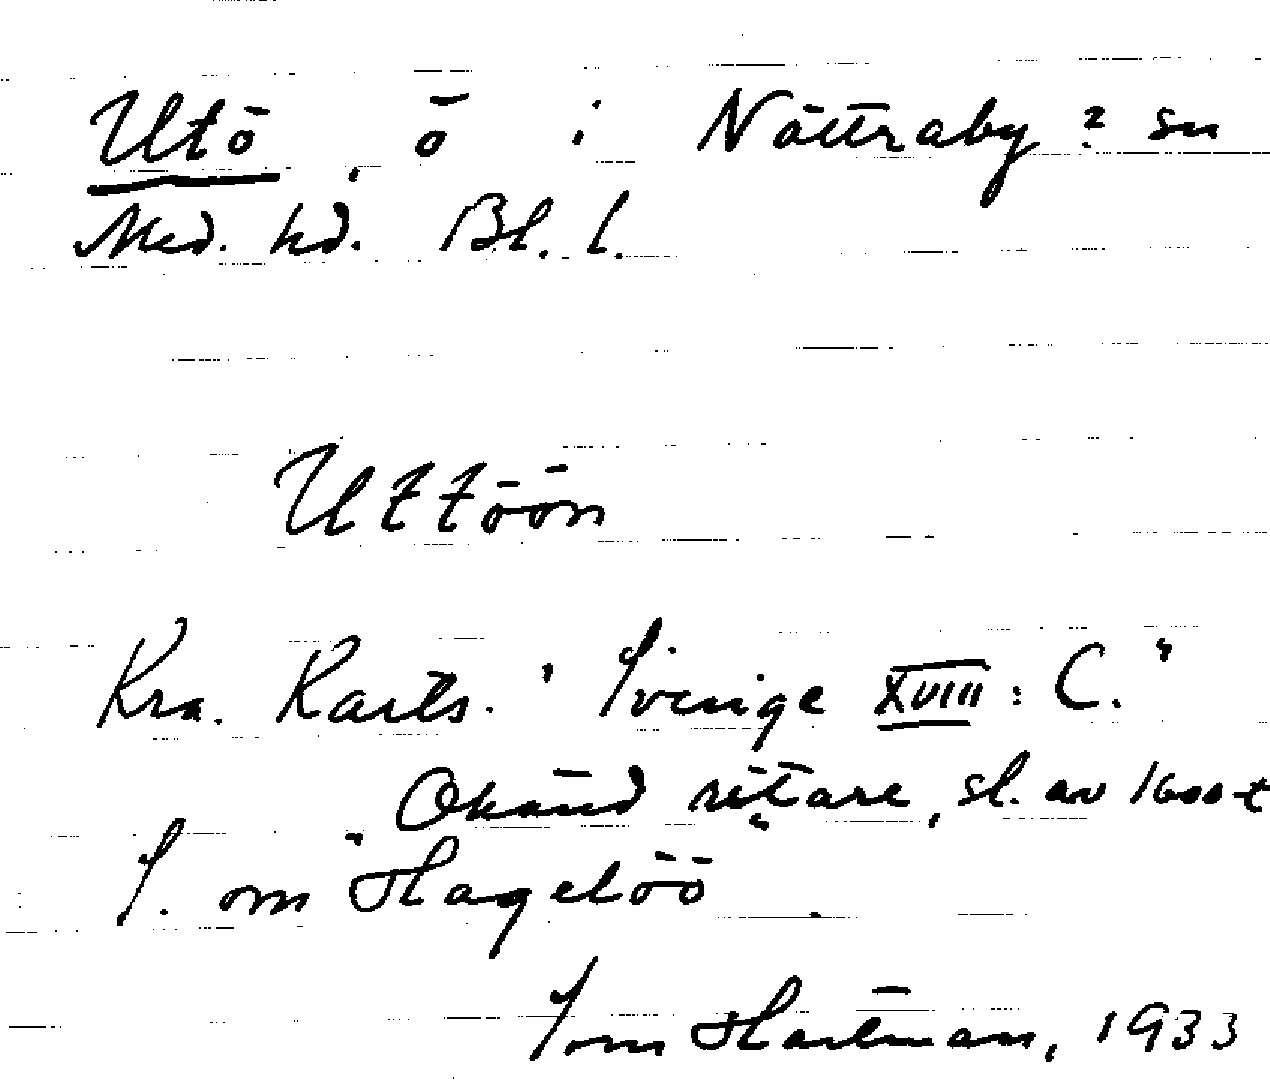 Utö, ö i Nättraby? sn
Med. hd. Bl. l.
Uttöön
Kra. Karts. "Sverige XVIII: C."
Okänd ritare, sl. av 1600-t
S. om "Hagelöö"
Tom Hartman, 1933